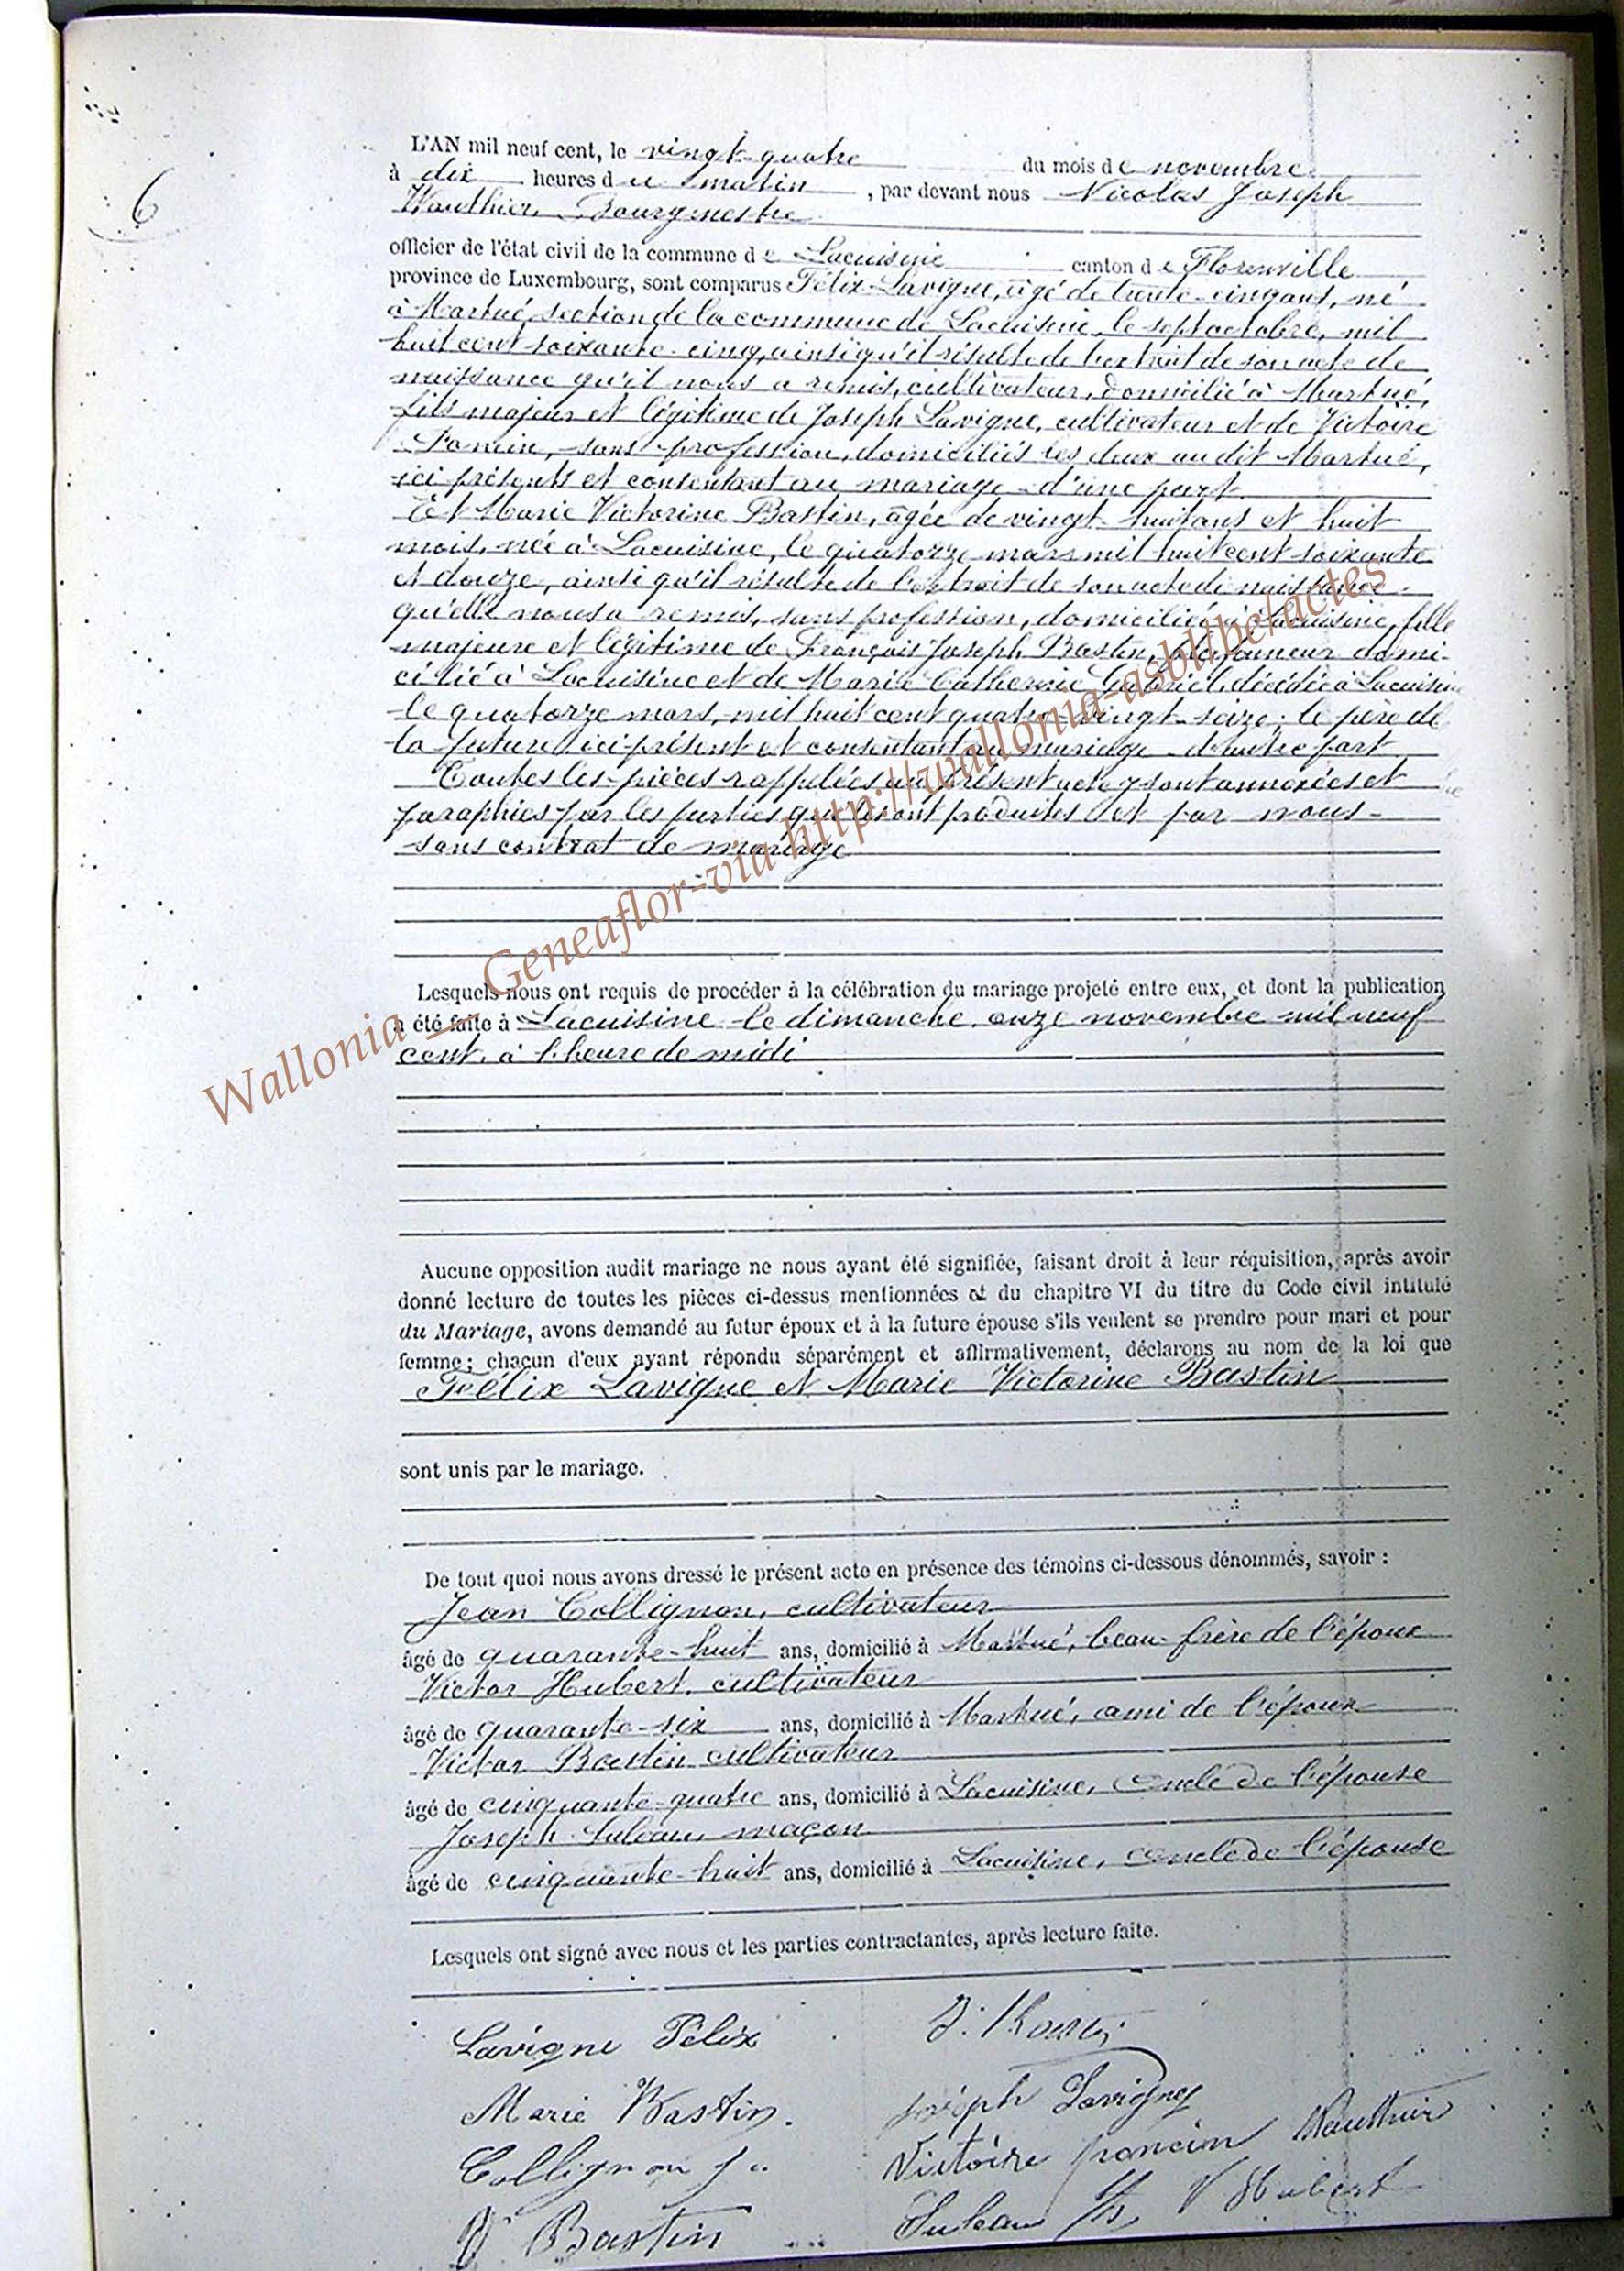 6
L'AN mil neuf cent, le vingt-quatre du mois de novembre
à dix heures du matin, par devant nous Nicolas Joseph
Wauthier, Bourgmestre
officier de l'état civil de la commune de Lacuisine canton de Florenville
province de Luxembourg, sont comparus Félix Lavigne, âgé de trente-cinq ans, né
à Martué, section de la commune de Lacuisine, le sept octobre, mil
huit cent soixante-cinq, ainsi qu'il résulte de l'extrait de son acte de
naissance qu'il nous a remis, cultivateur, domicilié à Martué,
fils majeur et légitime de Joseph Lavigne, cultivateur et de Victoire
sans profession, domiciliés les deux au dit Martué,
ici présents et consentant au mariage d'une part.
Et Marie Victorine Bastin, âgée de vingt-huit ans et huit
mois, née à Lacuisine, le quatorze mars mil huit cent soixante
et douze, ainsi qu'il résulte de l'extrait de son acte de naissance
qu'elle nous a remis, sans profession, domiciliée à Lacuisine, fille
majeure et légitime de François Joseph Bastin, domi-
cilié à Lacuisine et de Marie Catherine Gabriel, décédée à Lacuisine
le quatorze mars, mil huit cent quatre-vingt-seize; le père de
la future ici présent et consentant au mariage d'autre part
Toutes les pièces rappelées au présent acte y sont annexées et
paraphées par les parties qui les ont produites et par nous-
sans contrat de mariage
Lesquels nous ont requis de procéder à la célébration du mariage projeté entre eux, et dont la publication
a été faite à Lacuisine le dimanche onze novembre mil neuf
cent, à l'heure de midi
Aucune opposition audit mariage ne nous ayant été signifiée, faisant droit à leur réquisition, après avoir
donné lecture de toutes les pièces ci-dessus mentionnées et du chapitre VI du titre du Code civil intitulé
du Mariage, avons demandé au futur époux et à la future épouse s'ils veulent se prendre pour mari et pour
femme; chacun d'eux ayant répondu séparément et affirmativement, déclarons au nom de la loi que
Félix Lavigne et Marie Victorine Bastin
sont unis par le mariage.
De tout quoi nous avons dressé le présent acte en présence des témoins ci-dessous dénommés, savoir :
Jean Collignon, cultivateur
âgé de quarante-huit ans, domicilié à Martué, beau-frère de l'époux
Victor Hubert, cultivateur
âgé de quarante-six ans, domicilié à Martué, ami de l'époux
Victor Bastin cultivateur
âgé de cinquante-quatre ans, domicilié à Lacuisine, oncle de l'épouse
Joseph Suleau, maçon
âgé de cinquante-huit ans, domicilié à Lacuisine, oncle de l'épouse
Lesquels ont signé avec nous et les parties contractantes, après lecture faite.
Lavigne Félix
Marie Bastin.
Joseph Lavigne
Collignon J.
Victoire Wauthier
V Bastin
Suleau V Hubert
Wallonia — Geneaflor-via http://wallonia-asbl/be/actes